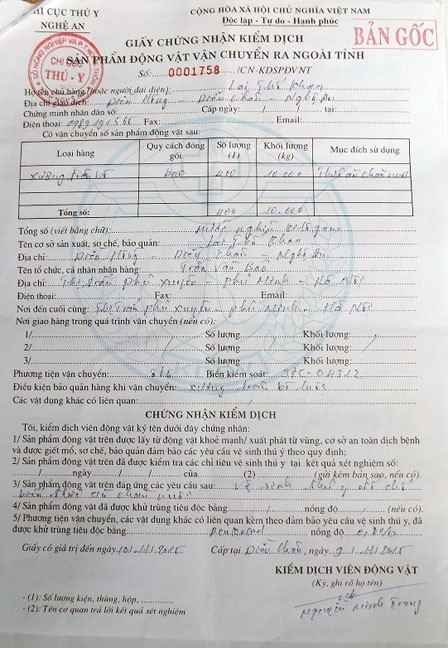 CHI CỤC THÚ Y
NGHỆ AN
CỘNG HÒA XÃ HỘI CHỦ NGHĨA VIỆT NAM
Độc lập - Tự do - Hạnh phúc
BẢN GỐC
GIẤY CHỨNG NHẬN KIỂM DỊCH
SẢN PHẨM ĐỘNG VẬT VẬN CHUYỂN RA NGOÀI TỈNH
Số: 0001758 /CN-KDSPĐVNT
CHI CỤC
THÚ - Y
Họ tên chủ hàng (hoặc người đại diện): Lại Thế Khan
Địa chỉ giao dịch: Diễn Hồng - Diễn Châu - Nghệ An
Chứng minh nhân dân số: Cấp ngày / / tại:
Điện thoại: Fax: Email:
Có vận chuyển số sản phẩm động vật sau:
Loại hàng Quy cách đóng gói Số lượng (1) Khối lượng (kg) Mục đích sử dụng
Xương bao 400 10.000 Thức ăn chăn nuôi
Tổng số: 400 10.000
Tổng số (viết bằng chữ): Mười nghìn kilôgam
Tên cơ sở sản xuất, sơ chế, bảo quản: Lại Thế Khan
Địa chỉ: Diễn Hồng - Diễn Châu - Nghệ An
Tên tổ chức, cá nhân nhận hàng: Trần Văn Bao
Địa chỉ: Thị trấn Phú Xuyên - Phú Minh - Hà Nội
Điện thoại: Fax: Email:
Nơi đến cuối cùng: Thị Trấn Phú Xuyên - Phú Minh - Hà Nội
Nơi giao hàng trong quá trình vận chuyển (nếu có):
1/ Số lượng Khối lượng:
2/ Số lượng Khối lượng:
3/ Số lượng Khối lượng:
Phương tiện vận chuyển: ôtô Biển kiểm soát: 37C-04312
Điều kiện bảo quản hàng khi vận chuyển:
Các vật dụng khác có liên quan:
CHỨNG NHẬN KIỂM DỊCH
Tôi, kiểm dịch viên động vật ký tên dưới đây chứng nhận:
1/ Sản phẩm động vật trên được lấy từ động vật khoẻ mạnh/ xuất phát từ vùng, cơ sở an toàn dịch bệnh
và được giết mổ, sơ chế, bảo quản đảm bảo các yêu cầu vệ sinh thú y theo quy định;
2/ Sản phẩm động vật trên đã được kiểm tra các chỉ tiêu vệ sinh thú y tại kết quả xét nghiệm số:
/ ngày / / của (2) (gửi kèm bản sao, nếu có)
3/ Sản phẩm động vật trên đáp ứng các yêu cầu sau: vệ sinh thú y
4/ Sản phẩm động vật đã được khử trùng tiêu độc bằng nồng độ (nếu có).
5/ Phương tiện vận chuyển, các vật dụng khác có liên quan kèm theo đảm bảo yêu cầu vệ sinh thú y, đã
được khử trùng tiêu độc bằng nồng độ
Giấy có giá trị đến ngày 10/11/2015 Cấp tại Diễn Châu, ngày 9/11/2015
KIỂM DỊCH VIÊN ĐỘNG VẬT
(Ký, ghi rõ họ tên)
- (1): Số lượng kiện, thùng, hộp,
- (2): Tên cơ quan trả lời kết quả xét nghiệm
Nguyễn Minh Trọng